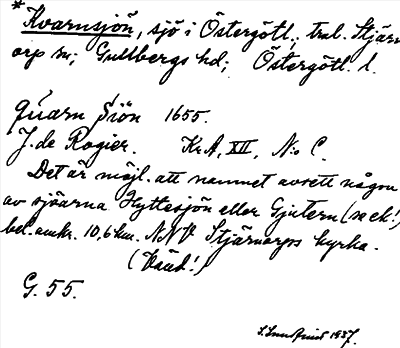 * Kvarnsjön, sjö i Östergötl.; trol. Stjärn
orp sn; Gullbergs hd; Östergötl. l.
quarn siön 1655.
J. de Rogier. Kr.A, XII, N:o C.
Det är möjl. att namnet avsett någon
av sjöarna Hyttesjön eller Gjutern (se ek!)
bel. omkr. 10,6 km. NNV Stjärnorps kyrka.
(Vänd!)
G. 55.
S. Lundqvist 1937.